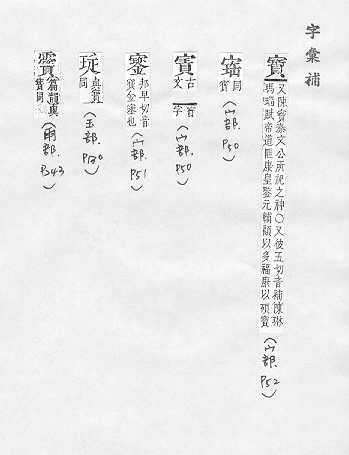 字彙補
寶
又陳寶秦文公所祀之神〇又彼五切音補陳琳
瑪瑙賦帝道匪康皇鑒元輔顯以多福康以碩寶
(宀部. P52)
同
寶
(宀部. P50)
古
文
字
(宀部. P50)
邦早切音
寶金也
(宀部. P51)
與寶
同
(玉部. P130)
靌
篇韻與
寶同
(雨部. P343)